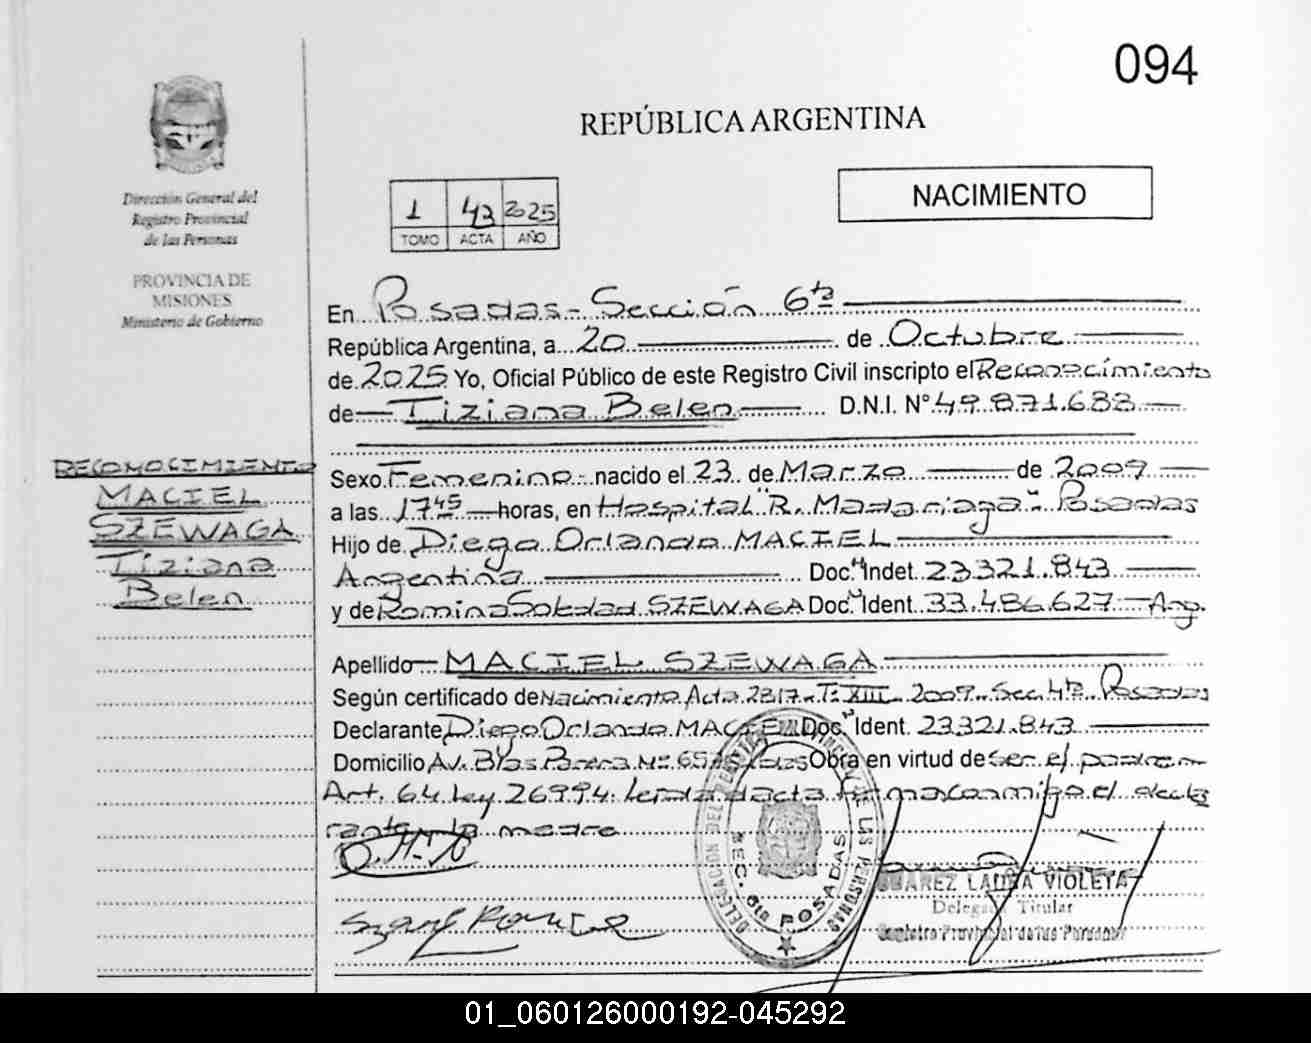 094
REPÚBLICA ARGENTINA
NACIMIENTO
Dirección General del
Registro Provincial
de las Personas
PROVINCIA DE
MISIONES
Ministerio de Gobierno
1 43 2025
TOMO ACTA AÑO
En Posadas - Sección 6ta
República Argentina, a 20 de Octubre
de 2025 Yo, Oficial Público de este Registro Civil inscripto el Reconocimiento
de Tiziana Belen D.N.I. N° 49.871.683
RECONOCIMIENTO
MACIEL
SZEWAGA
Tiziana
Belen
Sexo Femenino nacido el 23 de Marzo de 2009
a las 17 45 horas, en Hospital "R. Madariaga" - Posadas
Hijo de Diego Orlando MACIEL
Argentina Doc. Indet. 23.321.843
y de Romina Soledad SZEWAGA Doc. Ident. 33.486.627 - Arg.
Apellido MACIEL SZEWAGA
Según certificado de Nacimiento Acta 2817 - T: XIII - 2009 - Sec. 4ta Posadas
Declarante Diego Orlando MACIEL Doc. Ident. 23.321.843
Domicilio Av. Obra en virtud de ser el padre
Art. 64 Ley 26994. Leida el acta firma conmigo el decla
rante y la madre
DELEGACION DEL REGISTRO PROVINCIAL DE LAS PERSONAS
SEC. 6ta POSADAS
SUAREZ LAURA VIOLETA
Delegada Titular
Registro Provincial de las Personas
01_060126000192-045292